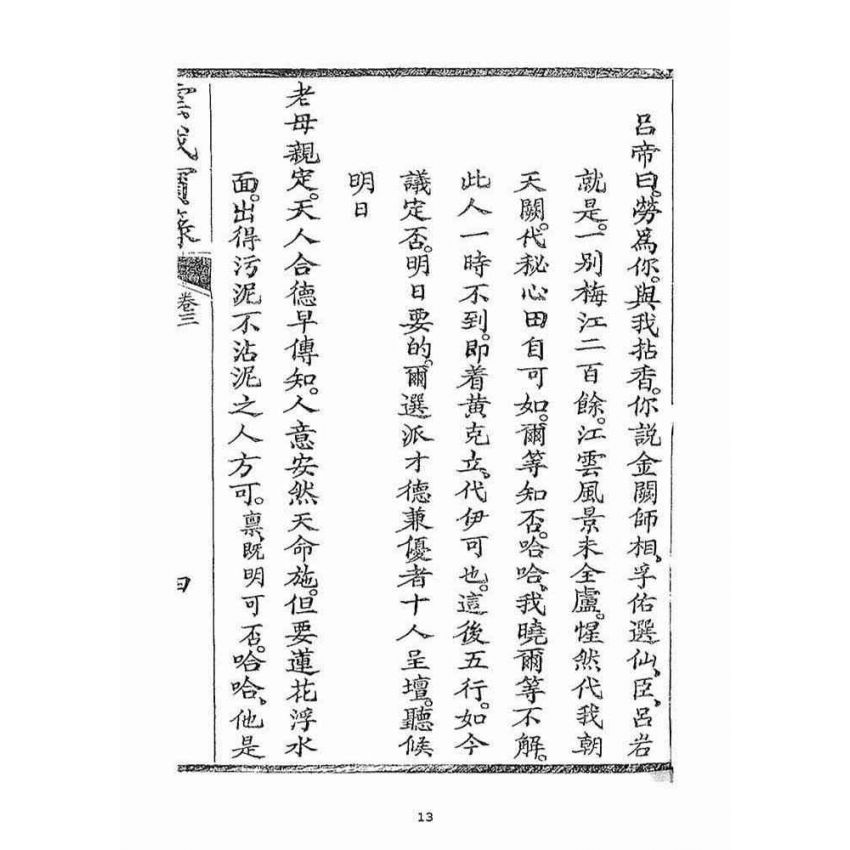 呂帝曰。勞爲你。與我拈香。你説金闕師相、孚佑選仙、臣、呂岩
就是。一別梅江二百餘。江雲風景未全盧。惺然代我朝
天闕。代秘心田自可如。爾等知否。哈哈、我曉爾等不解。
此人一時不到。即着黄克立、代伊可也。這後五行。如今
議定否。明日要的。爾選派才德兼優者十人呈壇。聽候
明日
老母親定。天人合德早傳知。人意安然天命施。但要蓮花浮水
面。出得污泥不沾泥之人方可。稟既明可否。哈哈、他是
寶籙
卷三
13